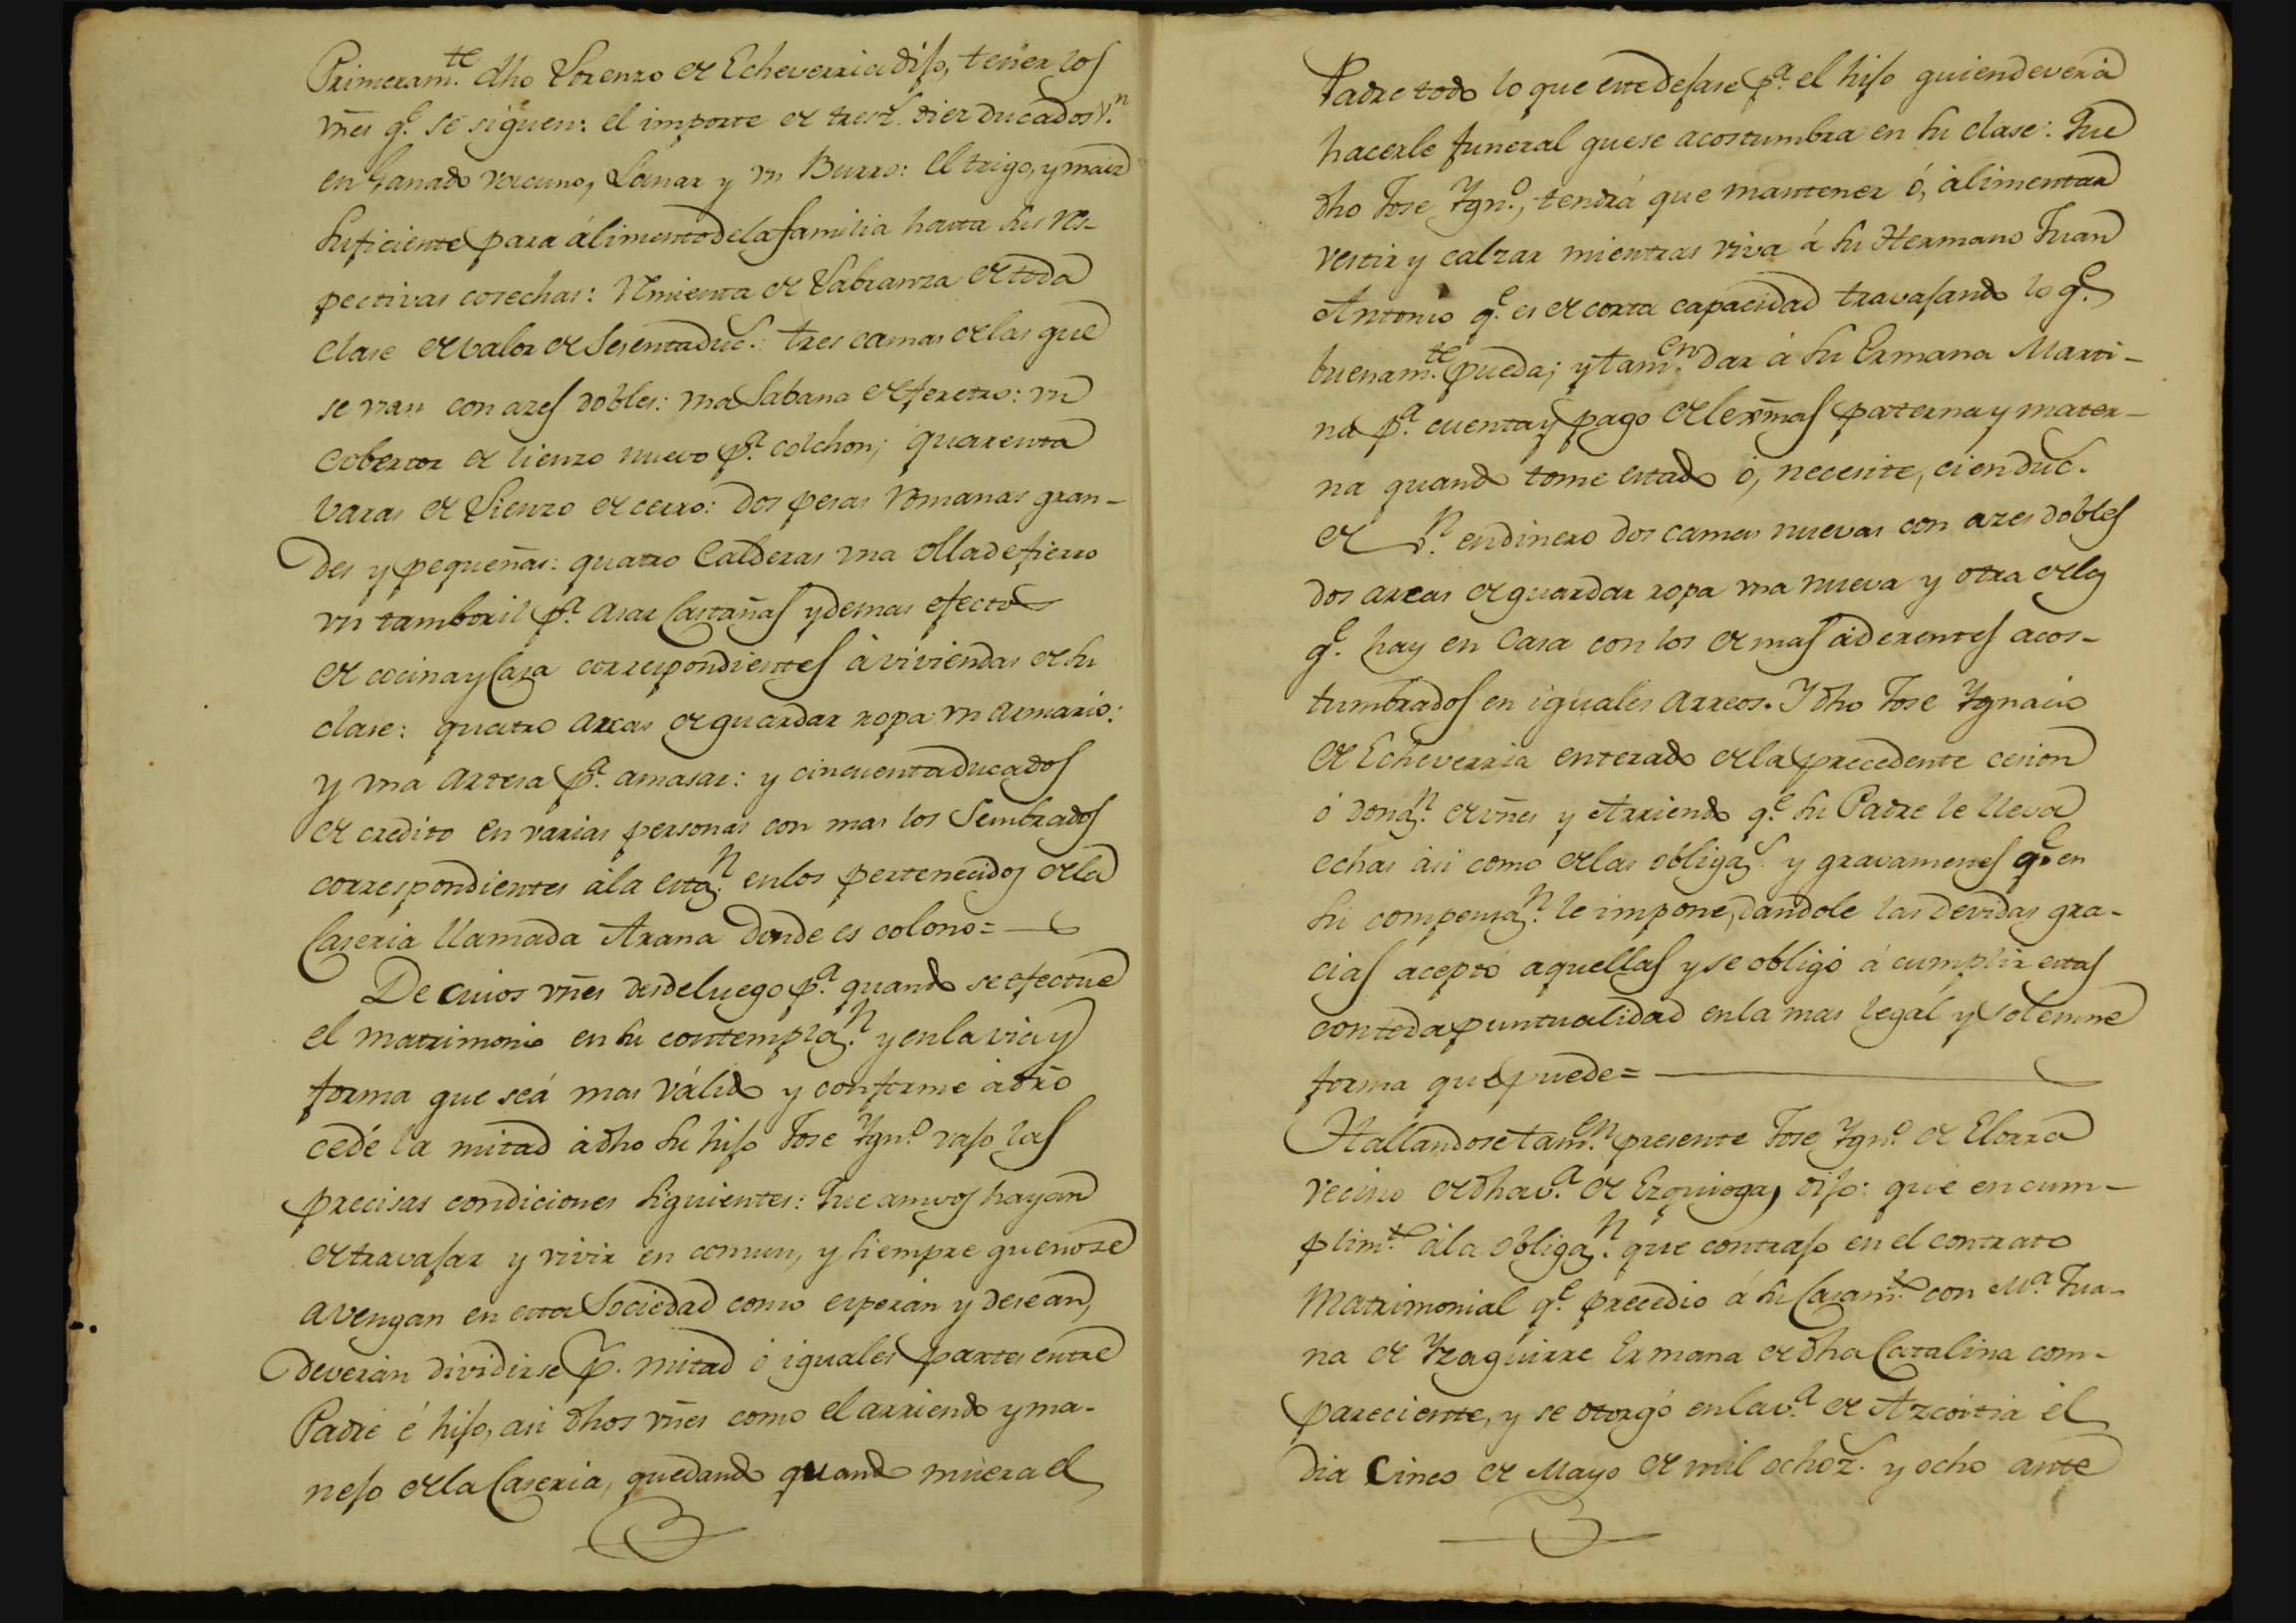 Primeram.te dho Lorenzo de Echeverria dijo, tener los
vñes q.e se siguen: el importe de tresz.s diez ducados v.n
en Ganado vacuno, Lanar y vn Burro: El trigo, y maiz
suficiente para álimento de la familia hasta sus res-
pectivas cosechas: Rmienta de Labranza de toda
clase de valor de Sesenta duc.s: tres camas de las que
se vsan con azes dobles: vna Sabana de feretro: vn
Cobertor de lienzo nuevo p.a colchon; quarenta
varas de Lienzo de cerro: dos pesas Romanas gran-
des y pequeñas: quatro Calderas vna olla de fierro
vn tamboril p.a asar Castañas y demas efectos
de cocina y Casa correspondientes à viviendas de su
clase: quatro arcas de guardar ropa vn armario:
y vna artesa p.a amasar: y cincuenta ducados
de credito en varias personas con mas los Sembrados
correspondientes ála esta.n en los pertenecidos de la
Caseria llamada Arana donde es colono=
De cuios vñes desde luego p.a quando se efectue
el matrimonio en su contempla.n y en la via y
forma que seá mas válido y conforme à dro
cedé la mitad à dho su hijo Jose Ygn.o vajo las
precisas condiciones siguientes: Que amvos hayan
de travajar y vivir en comun, y siempre que no se
avengan en esta Sociedad como esperan y desean,
deverán dividirse p.r mitad ó iguales partes entre
Padre é hijo, asi dhos vñes como el arriendo y ma-
nejo de la Caseria, quedando quando muera el
Padre todo lo que este dejare p.a el hijo quien deverá
hacerle funeral que se acostumbra en su clase: Que
dho Jose Ygn.o, tendrá que mantener ó, àlimentar
vestir y calzar mientras viva á su Hermano Juan
Antonio q.e es de corta capacidad travajando lo q.e
buenam.te pueda; y tam.en dar à su Ermana Marti-
na p.a cuenta y pago de lexmas paterna y mater-
na quando tome estado ó, necesite, cien duc.s
de v.n en dinero dos camas nuevas con azes dobles
dos arcas de guardar ropa vna nueva y otra de las
q.e hay en Casa con los demas àderentes acos-
tumbrados en iguales arreos. Y dho Jose Ygnacio
de Echeverria enterado de la precedente cesion
ó dona.n de vñes y Arriendo q.e su Padre le lleva
echas àsi como de las obliga.s y gravamenes q.e en
su compensa.n le impone, dandole las devidas gra-
cias aceptó aquellas y se obligó á cumplir estas
con toda puntualidad en la mas legal y solemne
forma que puede=
Hallandose tam.en presente Jose Ygn.o de Elorza
vecino de dha v.a de Ezquioga, dijo: que en cum-
plim.to àla obliga.n que contrajo en el contrato
Matrimonial q.e precedio á su Casam.to con M.a Jua-
na de Yzaguirre Ermana de dha Catalina com-
pareciente, y se otorgó en la v.a de Azcoitia él
dia Cinco de Mayo de mil ochoz.s y ocho ante